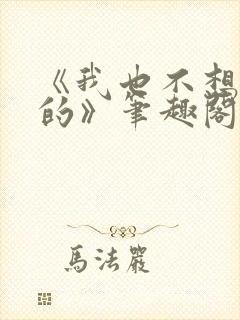 《我也不想
的》笔趣阁
馬法嚴